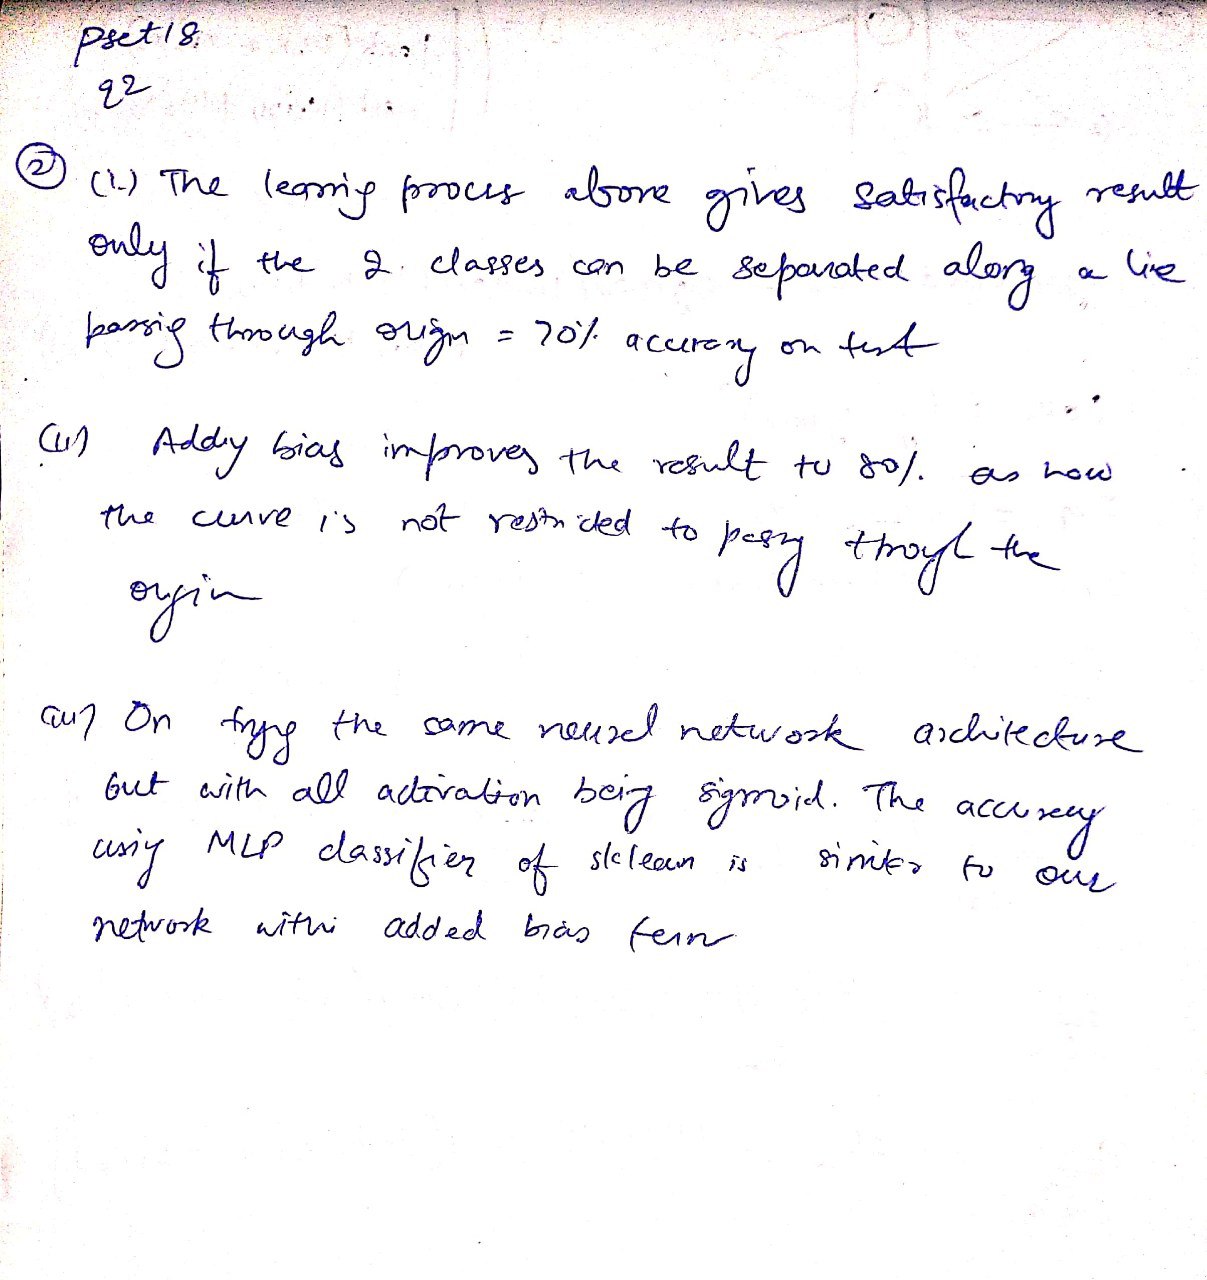 pset18
q2
② (i.) The learnig process above gives satisfactory result
only if the 2 classes can be separated along a line
passig through origin = 70% accuracy on test
(ii) Addig bias improves the result to 80% as now
the curve is not restricted to passg through the
origin
(iii) On tryng the same neural network architecture
but with all activation being sigmoid. The accuracy
using MLP classifier of sklearn is similar to our
network with added bias term